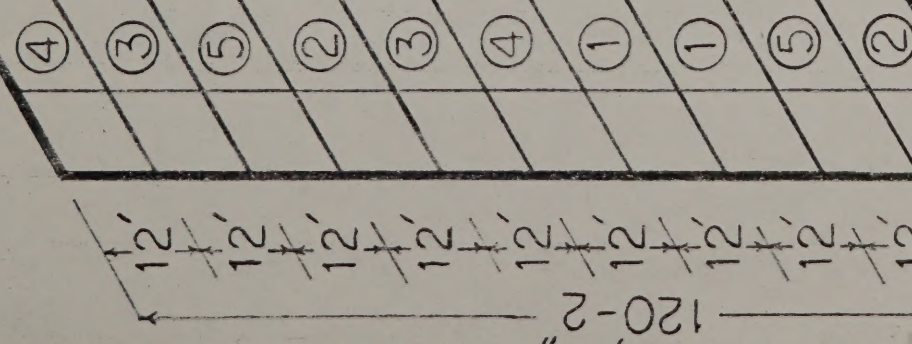 ④ ③ ⑤ ② ③ ④ ① ① ⑤ ②
12' 12' 12' 12' 12' 12' 12' 12' 12
120'-2"